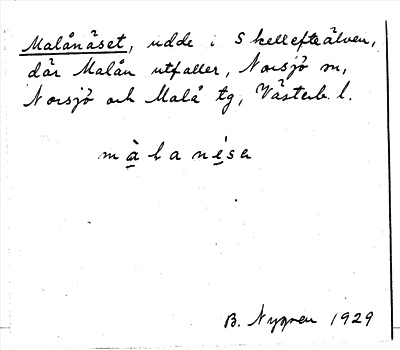 Malånäset, udde i Skellefteälven,
där Malån utfaller, Norsjö sn,
Norsjö och Malå tg, Västerb. l.
màlanésa
B. Nygren 1929